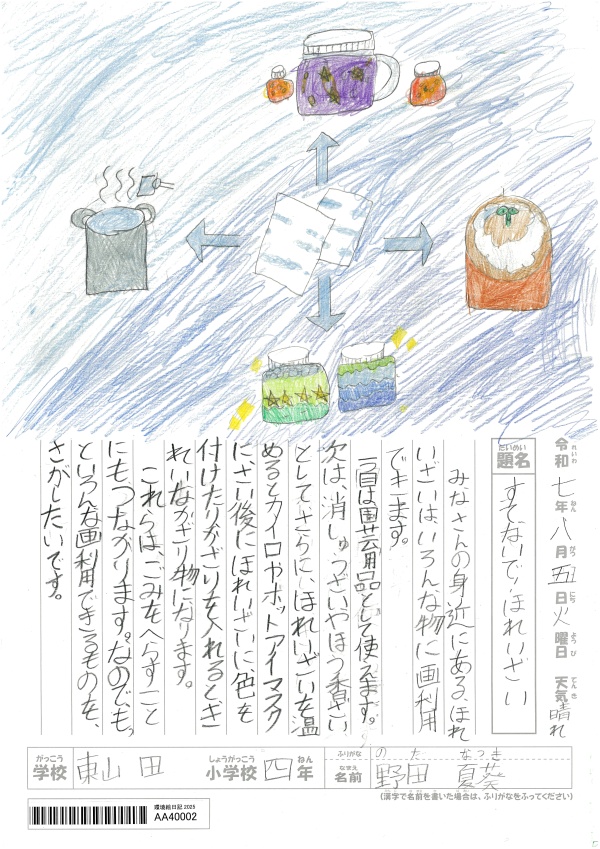 令和七年八月五日火曜日 天気晴れ
れいわ ねん がつ にち ようび てんき
題名 すてないで!ほれいざい
だいめい
みなさんの身近にある、ほれ
いざいは、いろんな物に画利用
できます。
一つ目は園芸用品として使えます。
次は、消しゅうざいやほう香ざい
として、さらに、ほれいざいを温
めるとカイロやホットアイマスク
に、さい後にほれいざいに、色を
付けたりかざりを入れるとき
れいなかざり物になります。
これらは、ごみをへらすこと
にもつながります。なので、も。
といろんな画利用できるものを、
さがしたいです。
がっこう しょうがっこう ねん ふりがな のだ なつき
学校 東山田 小学校 四年 なまえ 名前 野田 夏葵
(漢字で名前を書いた場合は、ふりがなをふってください)
環境絵日記 2025
AA40002